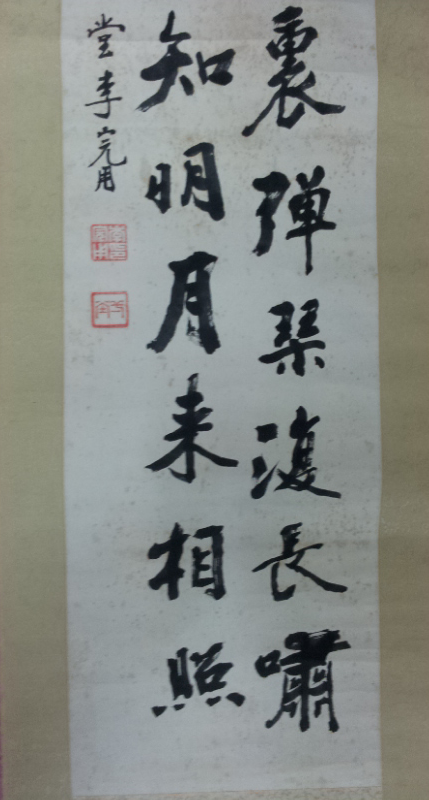 裏彈琴復長嘯
知明月来相照
堂李完用